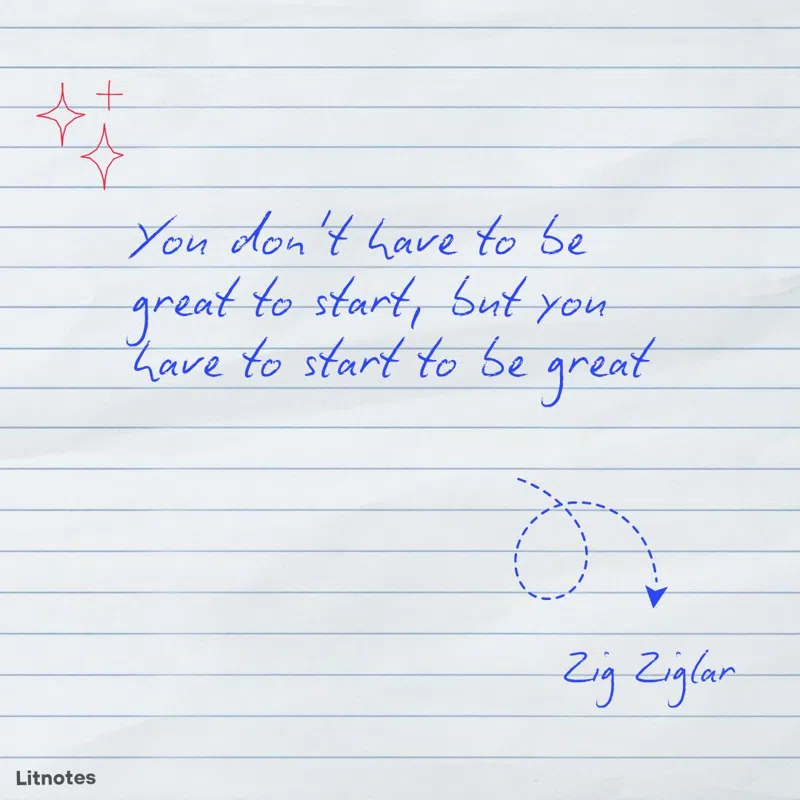 You don't have to be
great to start, but you
have to start to be great
Zig Ziglar
Litnotes